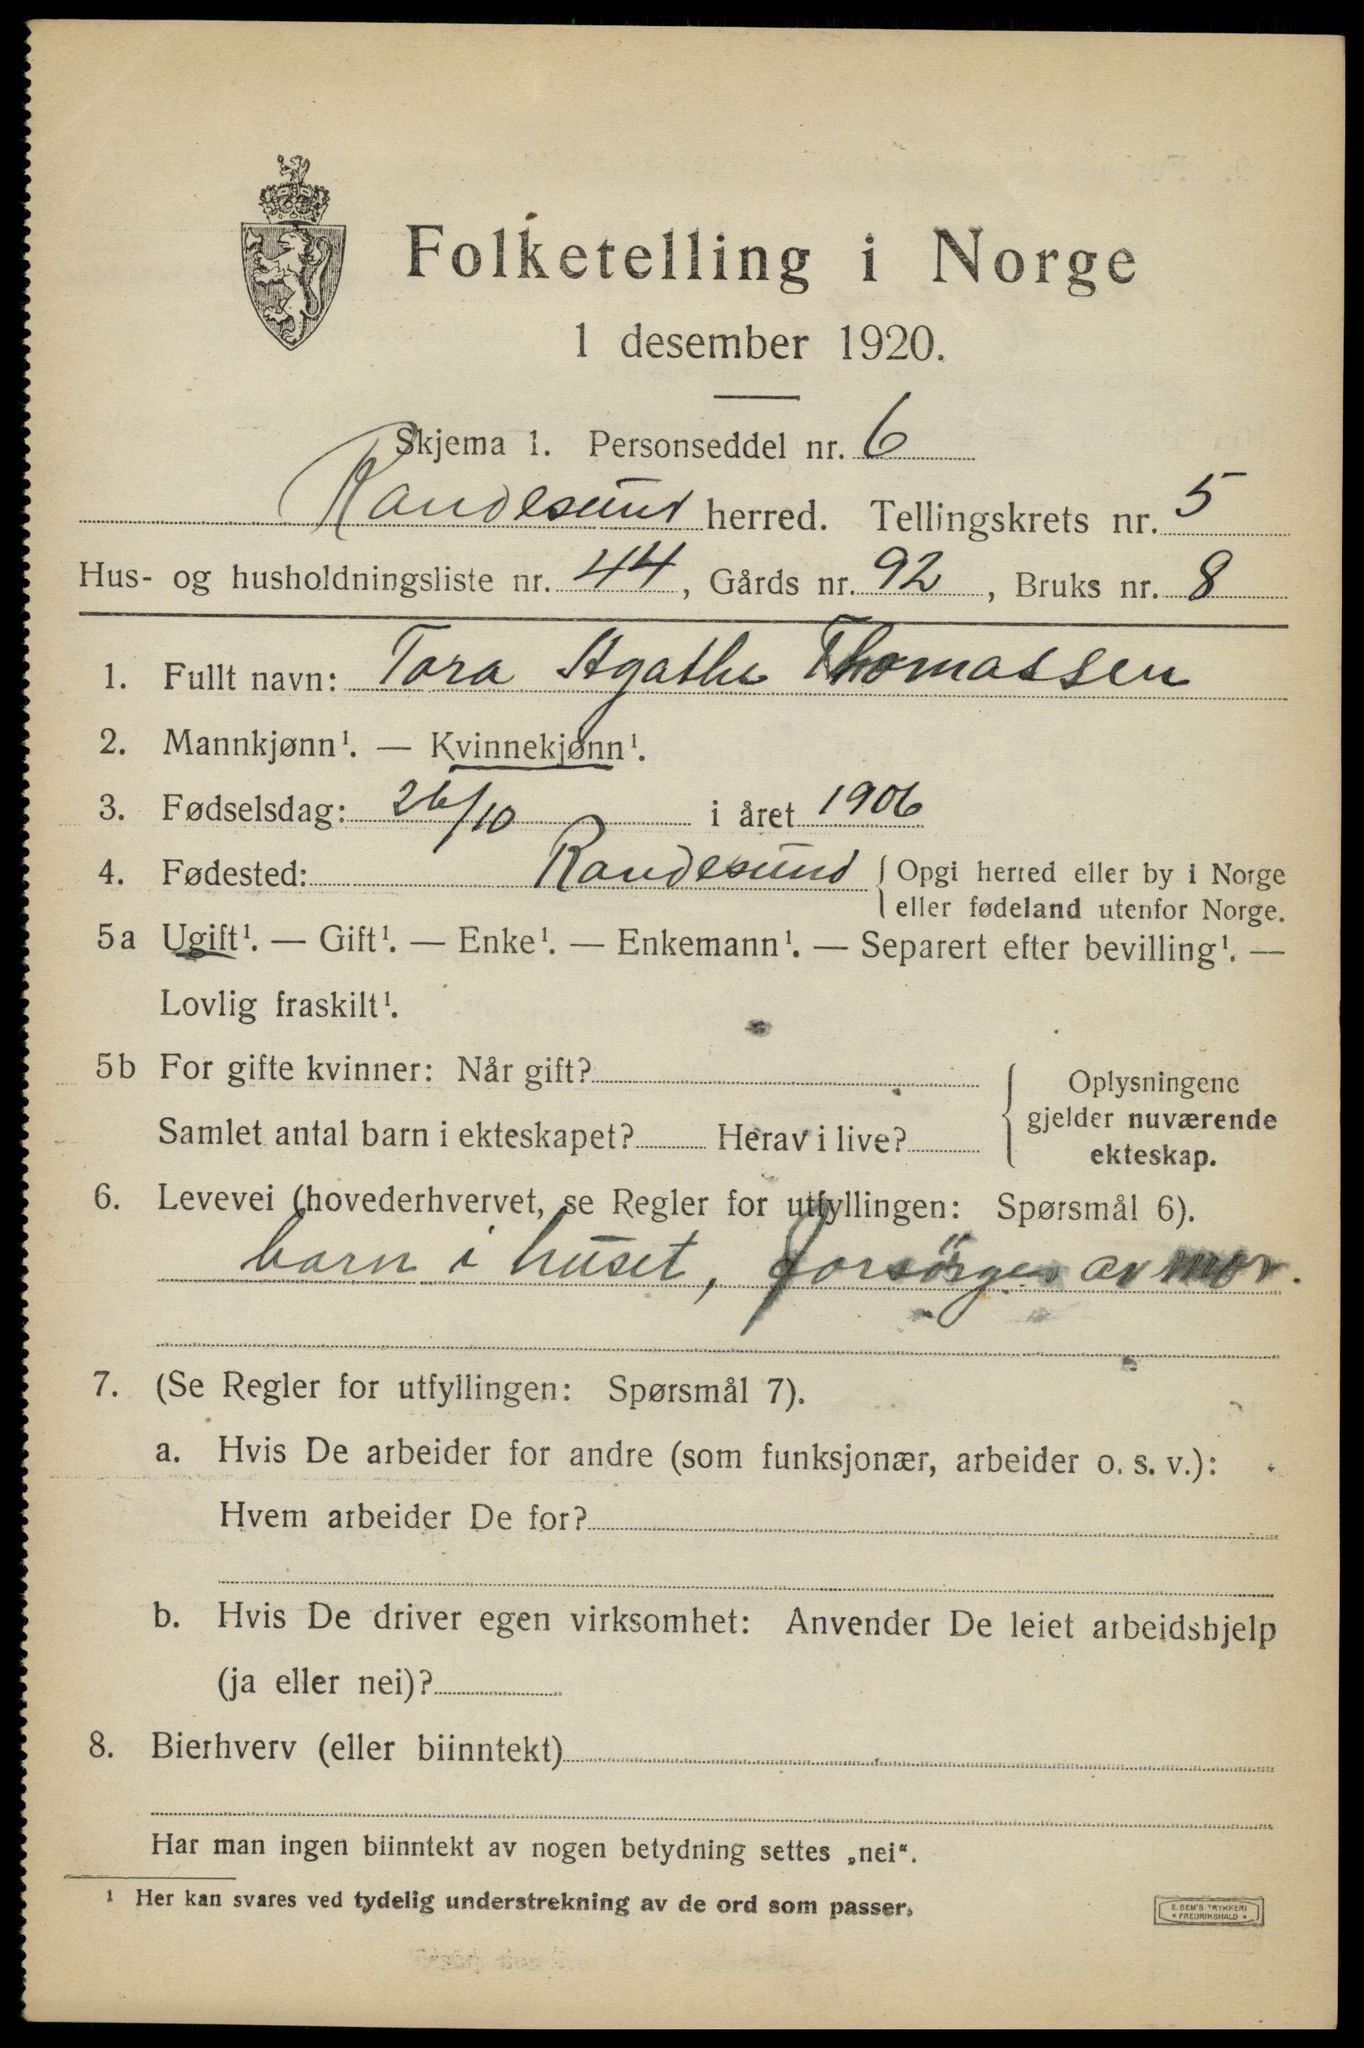 Folketelling i Norge
1 desember 1920.
Skjema 1. Personseddel nr. 6
Randesund herred. Tellingskrets nr. 5
Hus- og husholdningsliste nr. 44, Gårds nr. 92, Bruks nr. 8
1. Fullt navn: Tora Agathe Thomassen
2. Mannkjønn¹. — Kvinnekjønn¹.
3. Fødselsdag: 26/10 i året 1906
4. Fødested: Randesund Opgi herred eller by i Norge
eller fødeland utenfor Norge.
5a Ugift¹. — Gift¹. — Enke¹. — Enkemann¹. — Separert efter bevilling¹. —
Lovlig fraskilt¹.
5b For gifte kvinner: Når gift?
Samlet antal barn i ekteskapet? Herav i live?
Oplysningene
gjelder nuværende
ekteskap.
6. Levevei (hovederhvervet, se Regler for utfyllingen: Spørsmål 6).
barn i huset, forsörges av mor.
7. (Se Regler for utfyllingen: Spørsmål 7).
a. Hvis De arbeider for andre (som funksjonær, arbeider o. s. v.):
Hvem arbeider De for?
b. Hvis De driver egen virksomhet: Anvender De leiet arbeidshjelp
(ja eller nei)?
8. Bierhverv (eller biinntekt)
Har man ingen biinntekt av nogen betydning settes „nei“.
¹ Her kan svares ved tydelig understrekning av de ord som passer.
E. SEM'S TRYKKERI
* FREDRIKSHALD *